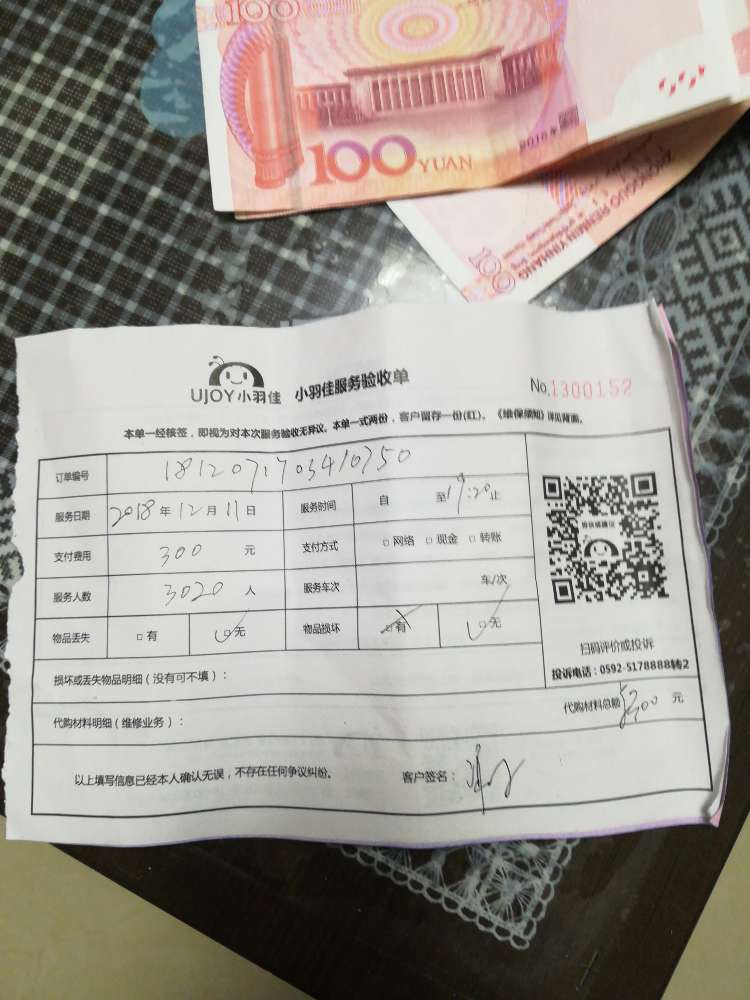 100
100YUAN
2015年
ZHONGGUO RENMIN YINHANG
100
UJOY小羽佳 小羽佳服务验收单 No.1300152
本单一经核签，即视为对本次服务验收无异议。本单一式两份，客户留存一份(红)。《维保须知》详见背面。
订单编号 1812071703410750
服务日期 2018年12月11日 服务时间 自 至19:20止
支付费用 300 元 支付方式 □网络 □现金 □转账
服务人数 3020 人 服务车次 车/次
物品丢失 □有 □无 物品损坏 □有 □无
扫码评价或投诉
投诉电话：0592-5178888转2
损坏或丢失物品明细（没有可不填）：
代购材料明细（维修业务）： 代购材料总额 元
以上填写信息已经本人确认无误，不存在任何争议纠纷。 客户签名：